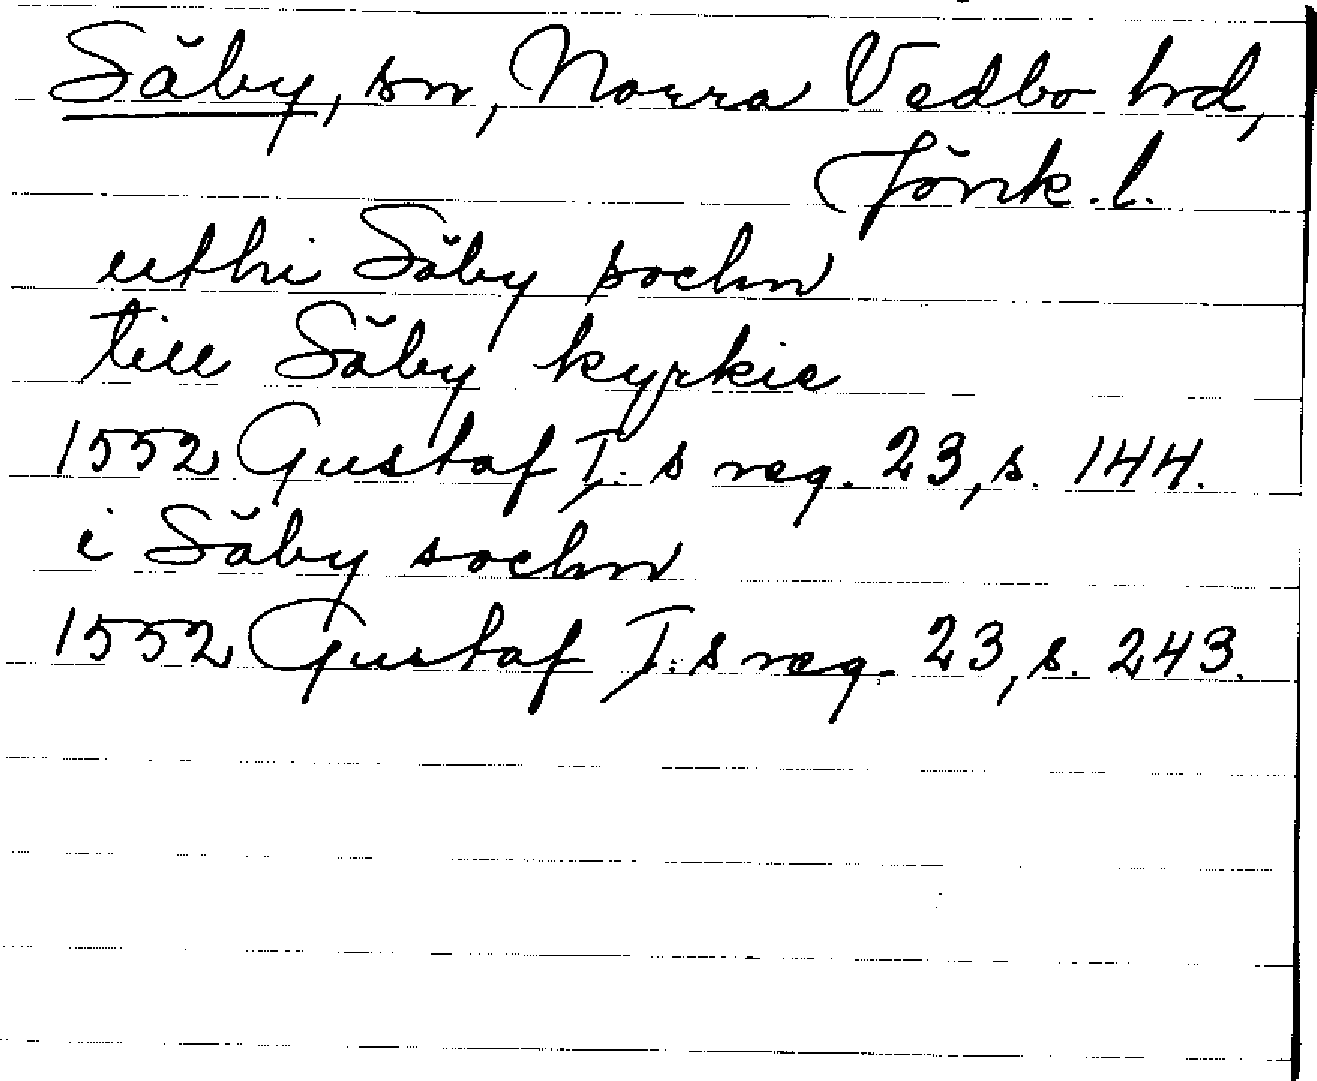 Säby, sn, Norra Vedbo hrd,
Jönk. l.
uthi Säby sochn
till Säby kyrkie
1552 Gustaf I:s reg. 23, s. 144.
i Säby sochn
1552 Gustaf I:s reg. 23, s. 243.